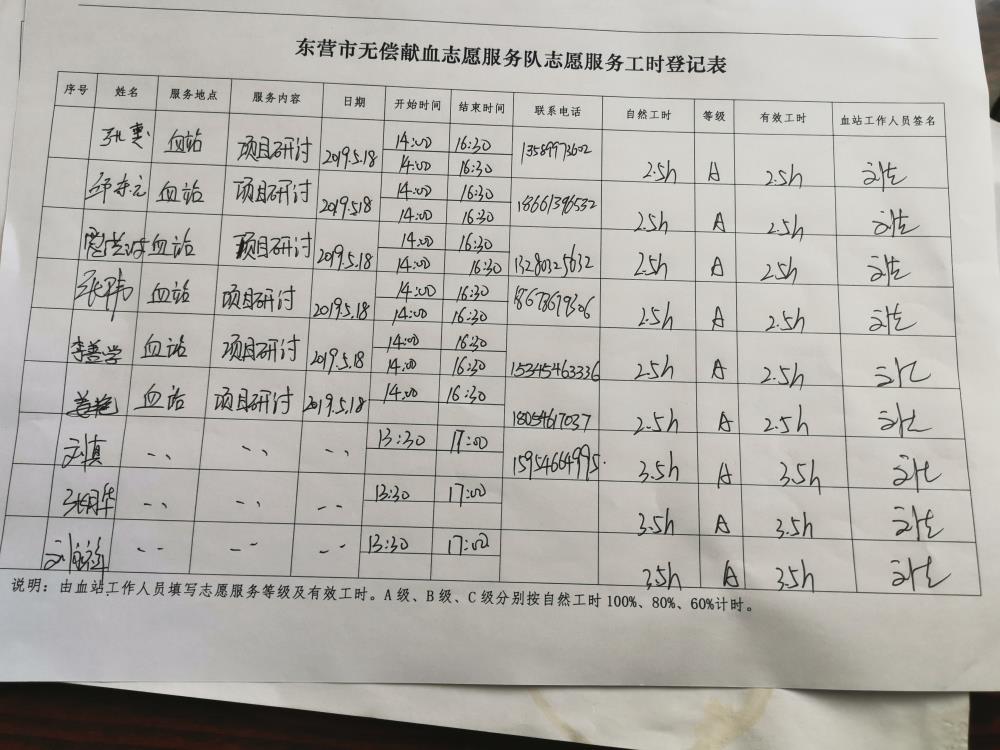 东营市无偿献血志愿服务队志愿服务工时登记表
序号 姓名 服务地点 服务内容 日期 开始时间 结束时间 联系电话 自然工时 等级 有效工时 血站工作人员签名
张惠 血站 项目研讨 2019.5.18 14:00 16:30 13589973602 2.5h A 2.5h
14:00 16:30
血站 项目研讨 2019.5.18 14:00 16:30 18661396532 2.5h A 2.5h
14:00 16:30
血站 项目研讨 2019.5.18 14:00 16:30 13280325632 2.5h A 2.5h
14:00 16:30
张伟 血站 项目研讨 2019.5.18 14:00 16:30 18678679306 2.5h A 2.5h
14:00 16:30
李善学 血站 项目研讨 2019.5.18 14:00 16:30 15345463336 2.5h A 2.5h
14:00 16:30
姜艳 血站 项目研讨 2019.5.18 14:00 16:30 18054617037 2.5h A 2.5h
刘真 -、 -、 -、 13:30 17:00 15954664995 3.5h A 3.5h
张月华 -、 -、 -- 13:30 17:00 3.5h A 3.5h
-- -- -- 13:30 17:00 3.5h A 3.5h
说明：由血站工作人员填写志愿服务等级及有效工时。A级、B级、C级分别按自然工时100%、80%、60%计时。